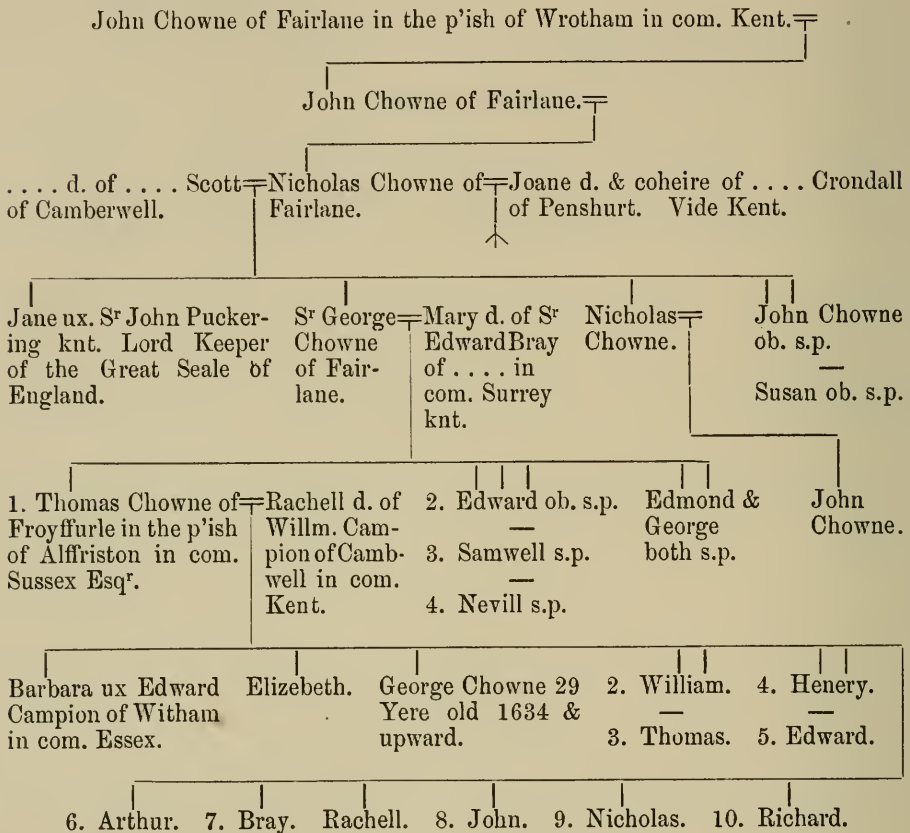 John Chowne of Fairlane in the p'ish of Wrotham in com. Kent.
John Chowne of Fairlane.
. . . . d. of . . . . Scott
of Camberwell.
Nicholas Chowne of
Fairlane.
Joane d. & coheire of . . . . Crondall
of Penshurt. Vide Kent.
Jane ux. Sr John Pucker-
ing knt. Lord Keeper
of the Great Seale of
England.
Sr George
Chowne
of Fair-
lane.
Mary d. of Sr
Edward Bray
of . . . . in
com. Surrey
knt.
Nicholas
Chowne.
John Chowne
ob. s.p.
—
Susan ob. s.p.
1. Thomas Chowne of
Froyffurle in the p'ish
of Alffriston in com.
Sussex Esqr.
Rachell d. of
Willm. Cam-
pion of Camb-
well in com.
Kent.
2. Edward ob. s.p.
—
3. Samwell s.p.
—
4. Nevill s.p.
Edmond &
George
both s.p.
John
Chowne.
Barbara ux Edward
Campion of Witham
in com. Essex.
Elizebeth.
George Chowne 29
Yere old 1634 &
upward.
2. William.
—
3. Thomas.
4. Henery.
—
5. Edward.
6. Arthur. 7. Bray. Rachell. 8. John. 9. Nicholas. 10. Richard.